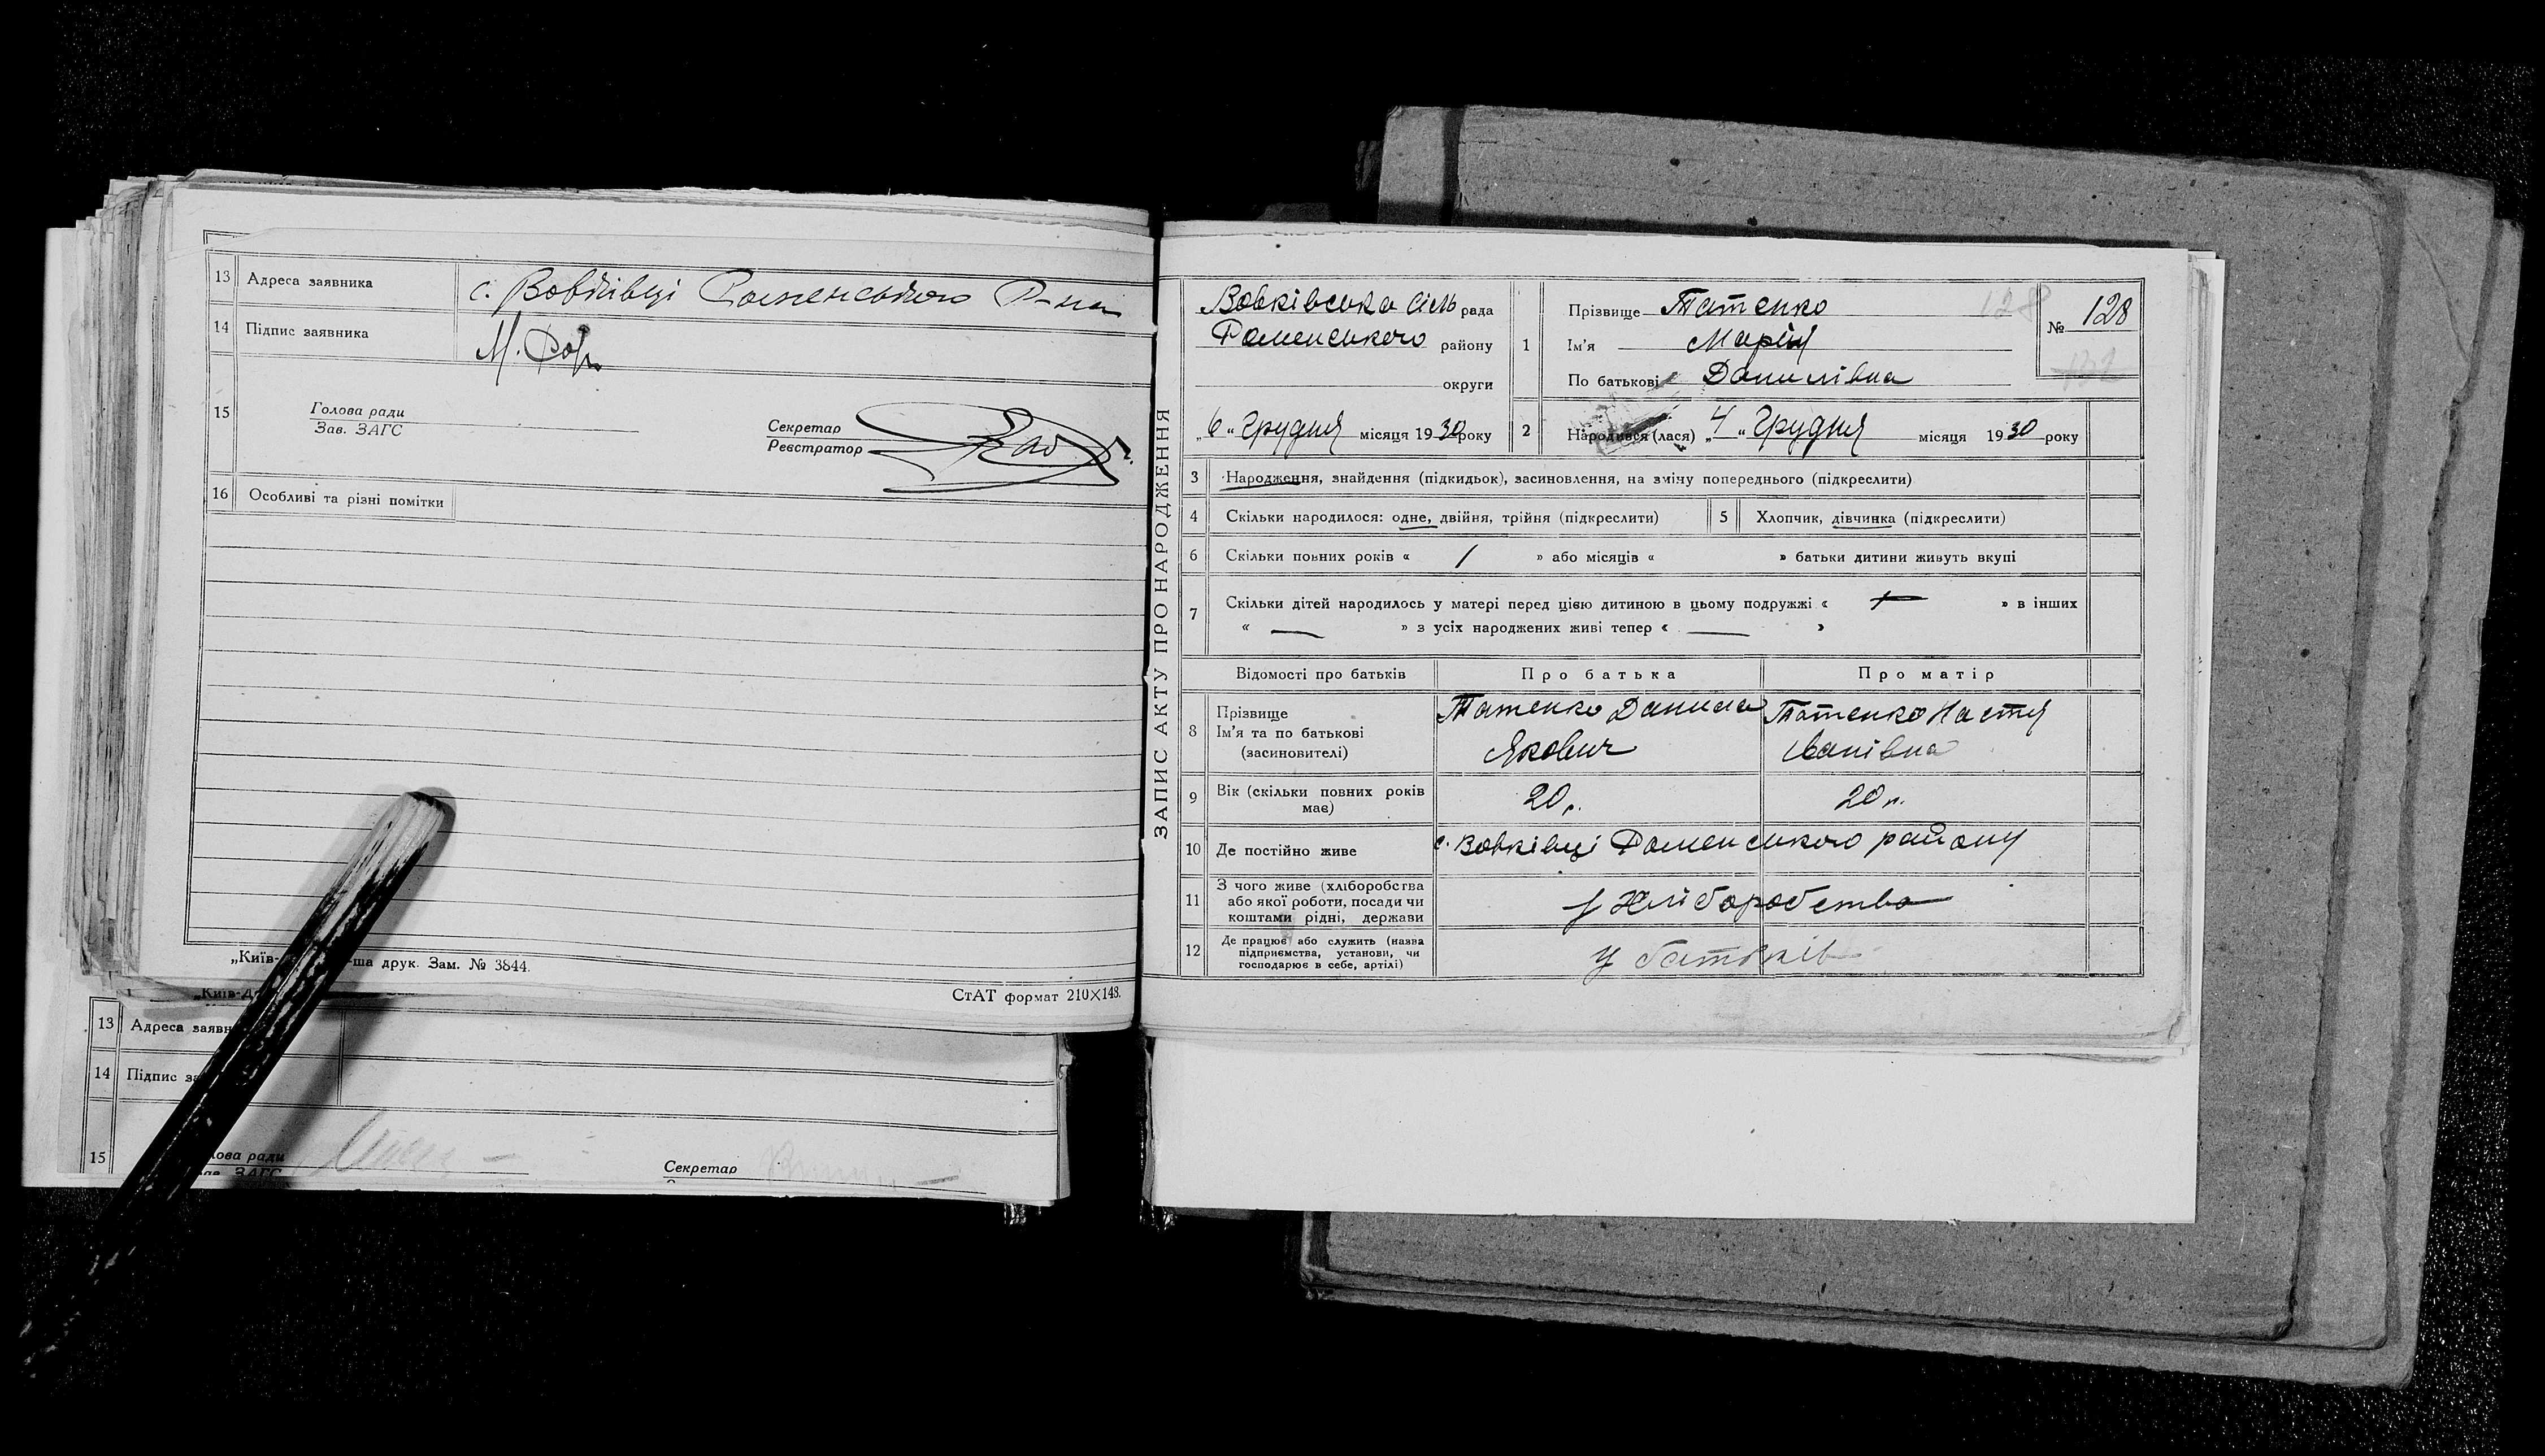 13 Адреса заявника с. Вовківці Роменського Р-на
14 Підпис заявника М.
15 Голова ради
Зав. ЗАГС
Секретар
Реєстратор
16 Особливі та різні помітки
„Київ- -ша друк. Зам. № 3844.
СтАТ формат 210×148.
„Київ-Д
13 Адреса заявн
14 Підпис за
15 лова ради
ав. ЗАГС
Секретар
ЗАПИС АКТУ ПРО НАРОДЖЕННЯ
Вовківська сіль рада
Роменського району
округи
„6“ Грудня місяця 1930 року
1 Прізвище Татенко 128
Ім'я Марія
По батькові Данилівна
№ 128
132
2 Народився (лася) „4“ Грудня місяця 1930 року
3 Народження, знайдення (підкидьок), засиновлення, на зміну попереднього (підкреслити)
4 Скільки народилося: одне, двійня, трійня (підкреслити) 5 Хлопчик, дівчинка (підкреслити)
6 Скільки повних років « 1 » або місяців « » батьки дитини живуть вкупі
7 Скільки дітей народилось у матері перед цією дитиною в цьому подружжі « » в інших
« — » з усіх народжених живі тепер « — »
Відомості про батьків Про батька Про матір
8 Прізвище
Ім'я та по батькові
(засиновителі)
Татенко Данила
Якович
Татенко Настя
Іванівна
9 Вік (скільки повних років
має)
20 р. 20 р.
10 Де постійно живе с. Вовківці Роменського району
11 З чого живе (хліборобства
або якої роботи, посади чи
коштами рідні, держави
з Хліборобства
12 Де працює або служить (назва
підприємства, установи, чи
господарює в себе, артілі)
у батьків